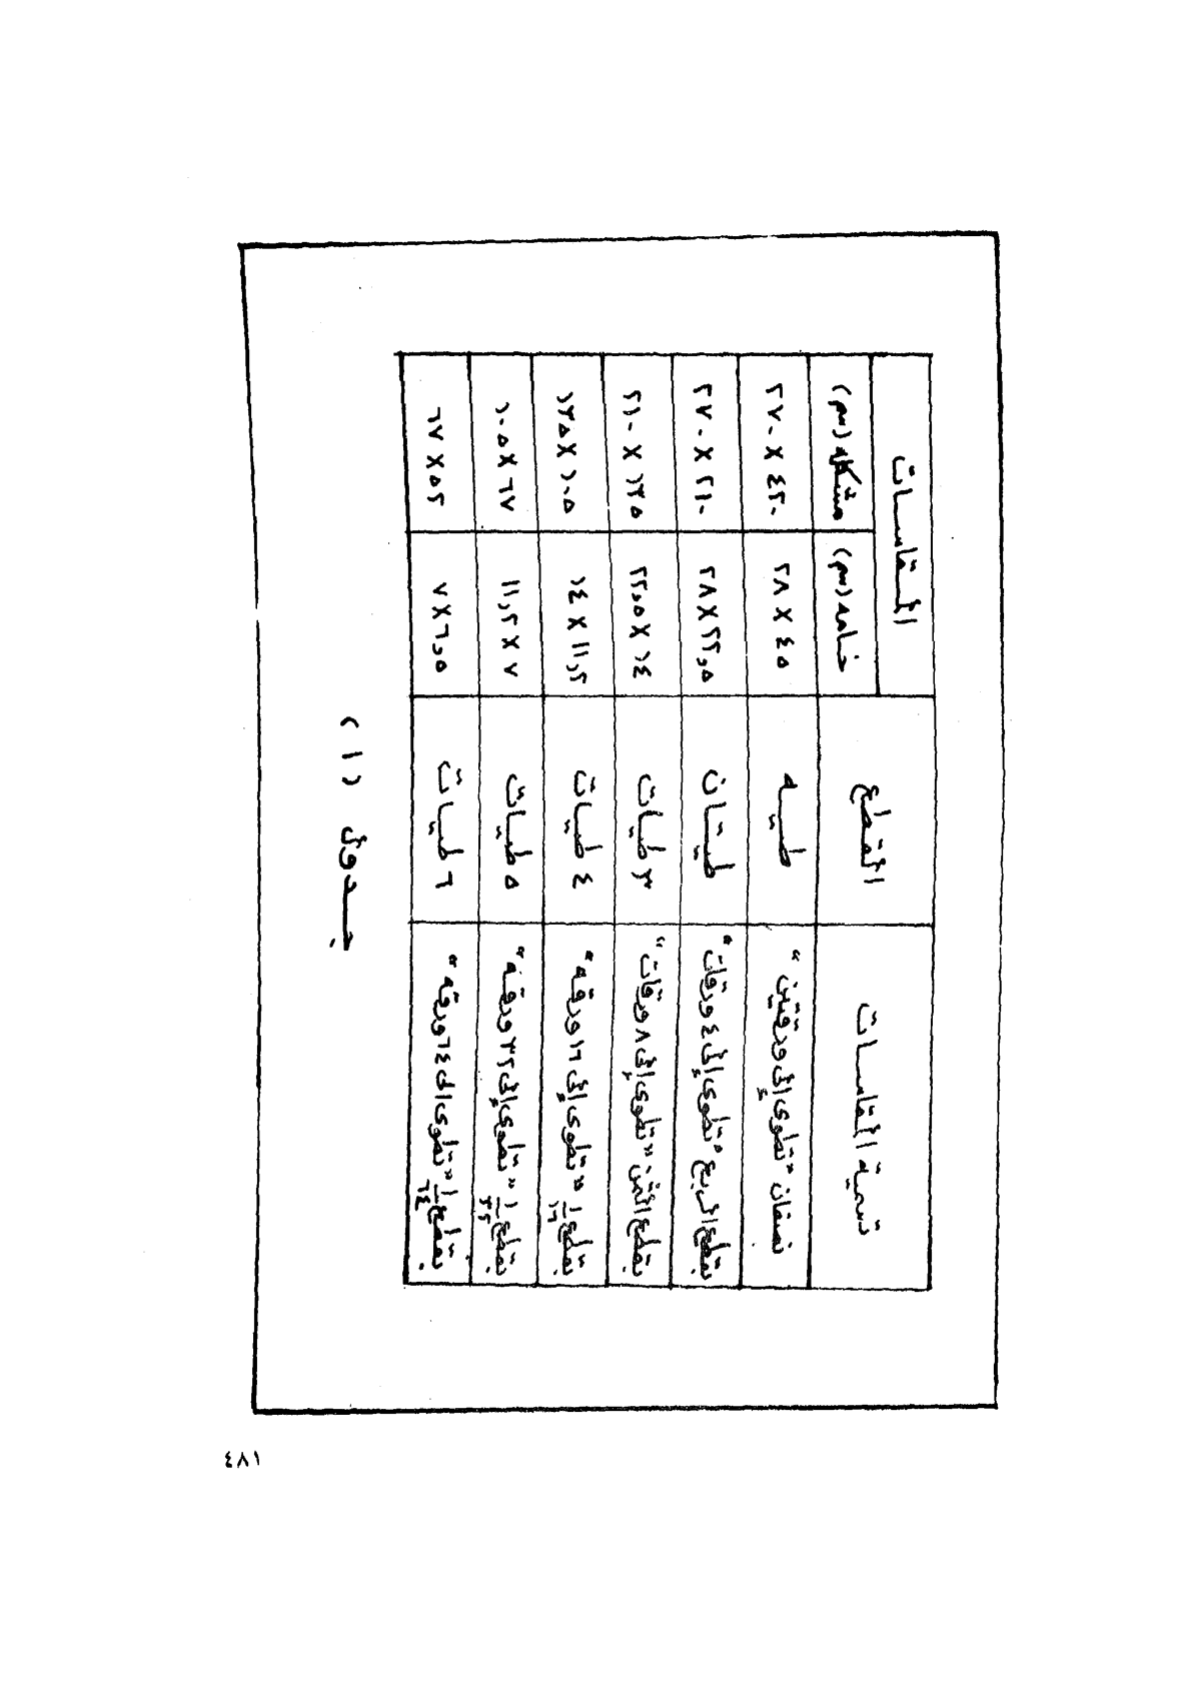 تسمية المقاسات المقطع المقاسات
خامه (سم) مشكله (سم)
نصفان "تطوى إلى ورقتين" طيه ٢٨ X ٤٥ ٢٧٠ X ٤٢٠
بقطع الربع "تطوى إلى ٤ ورقات" طيتان ٢٨ X ٢٢,٥ ٢٧٠ X ٢١٠
بقطع الثمن "تطوى إلى ٨ ورقات" ٣ طيات ٢٢,٥ X ١٤ ٢١٠ X ١٣٥
بقطع ١/١٦ "تطوى إلى ١٦ ورقه" ٤ طيات ١٤ X ١١,٢ ١٣٥ X ١٠٥
بقطع ١/٣٢ "تطوى إلى ٣٢ ورقه" ٥ طيات ١١,٢ X ٧ ١٠٥ X ٦٧
بقطع ١/٦٤ "تطوى الى ٦٤ ورقه" ٦ طيات ٧ X ٦,٥ ٦٧ X ٥٢
جدول (١)
٤٨١